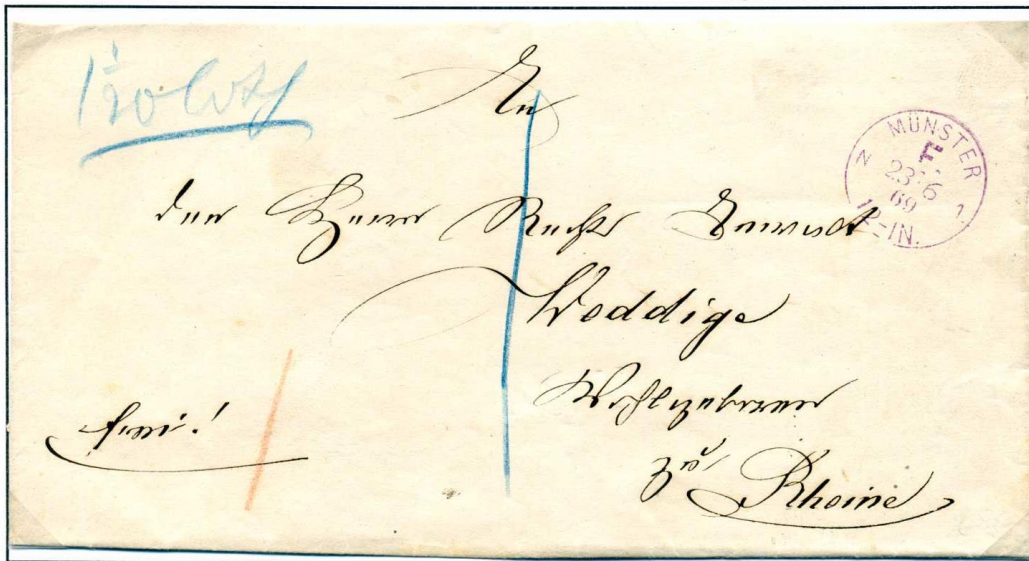 1 1/20 Loth
An
den Herrn Rechts Anwalt
Weddige
Wohlgeboren
zu Rheine
frei!
MÜNSTER
23 6
69